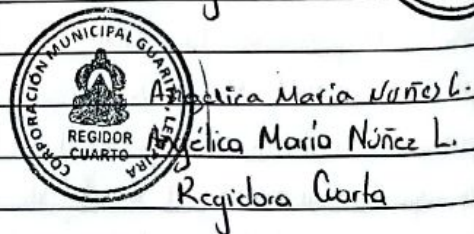 CORPORACIÓN MUNICIPAL GUARITA, LEMPIRA
REGIDOR
CUARTO
Angélica María Núñez L.
Angélica María Núñez L.
Regidora Cuarta